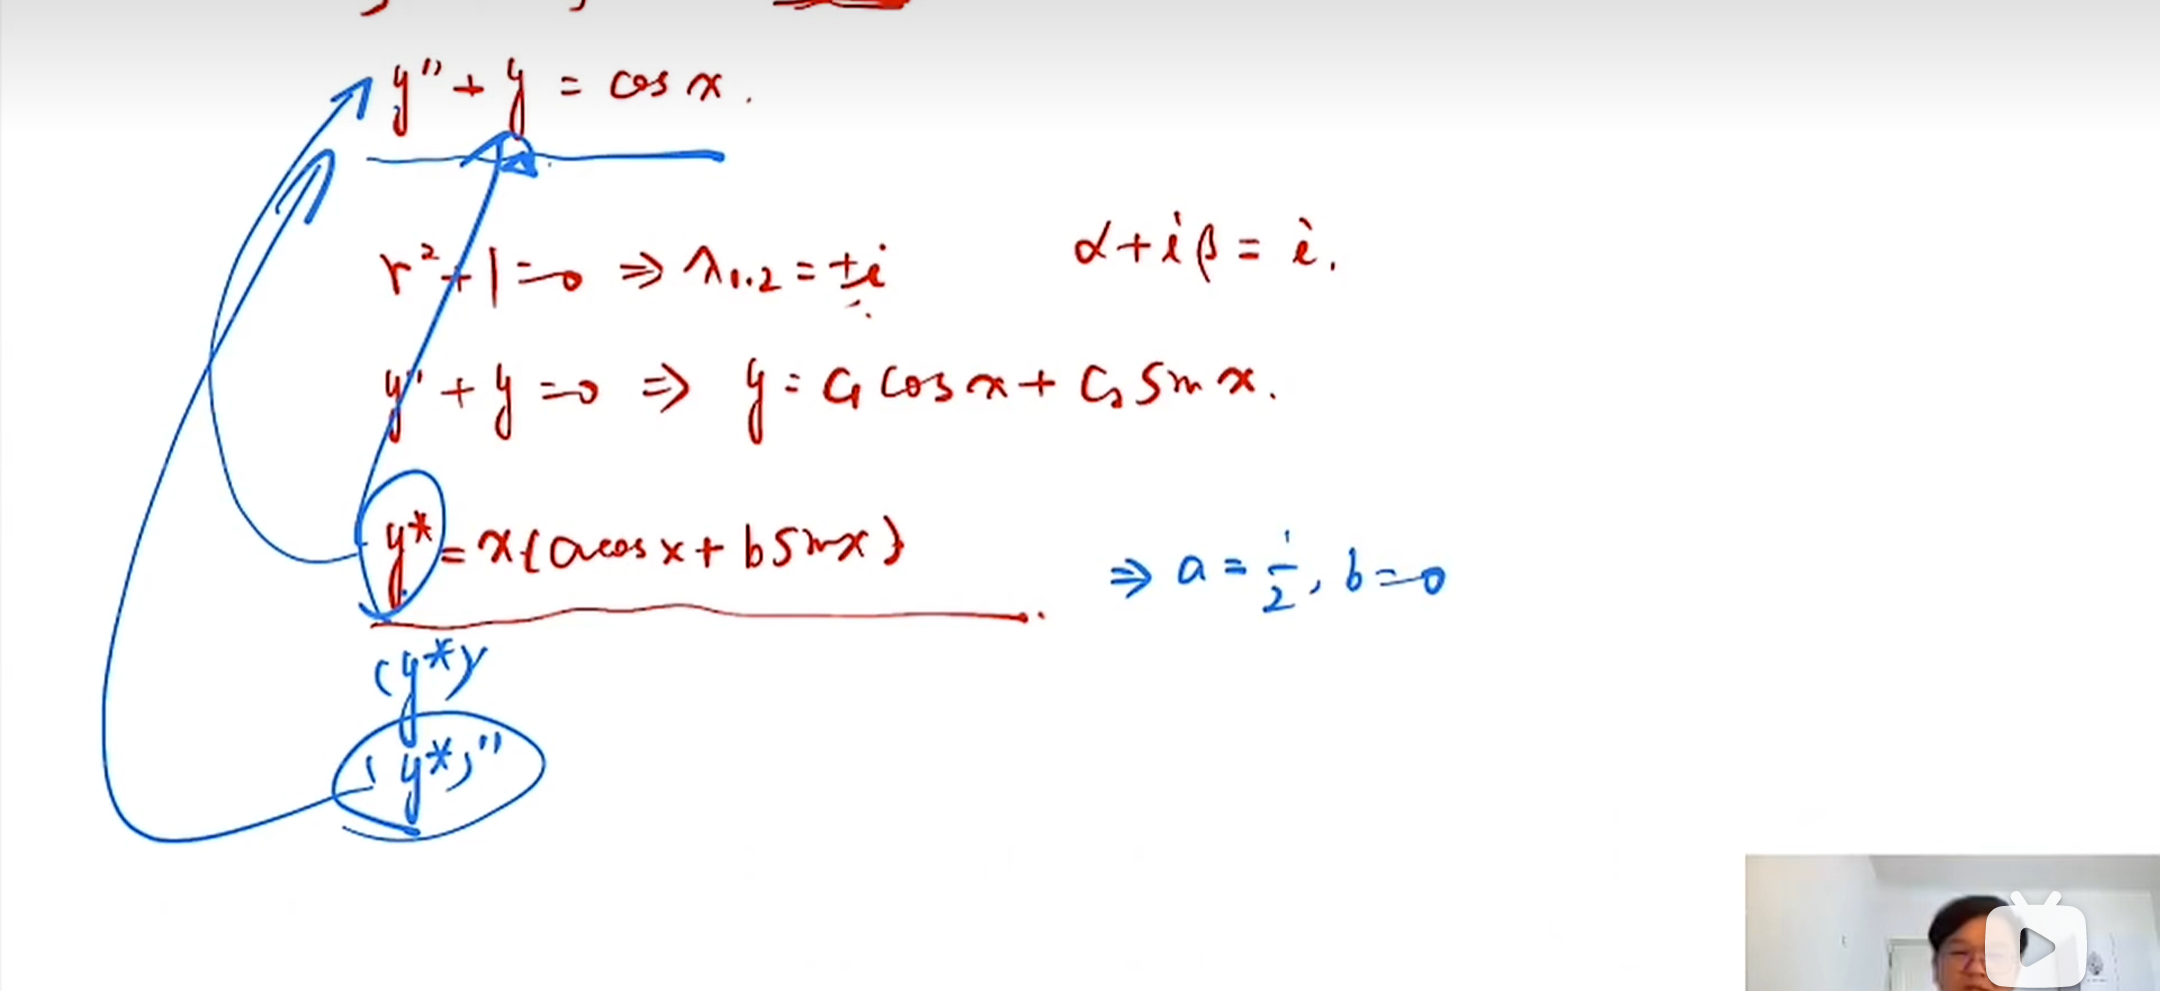 y'' + y = cos x.
r² + 1 = 0 ⇒ λ₁.₂ = ±i
α + iβ = i.
y'' + y = 0 ⇒ y = C₁ cos x + C₂ sin x.
y* = x{a cos x + b sin x}
⇒ a = 1/2, b = 0
(y*)'
(y*)''